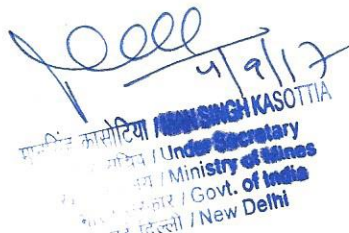 4/9/17
कासोटिया / MAN SINGH KASOTTIA
/ Under Secretary
/ Ministry of Mines
/ Govt. of India
दिल्ली / New Delhi